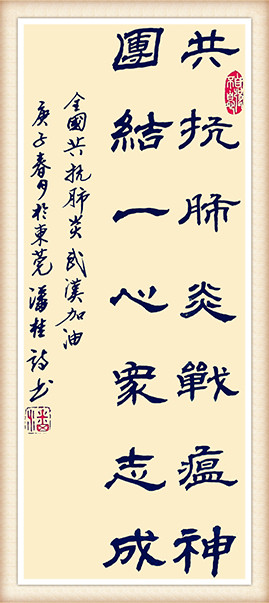 共抗肺炎戰瘟神
團結一心衆志成
全國共抗肺炎 武漢加油
庚子春月於東莞 潘桂詩书